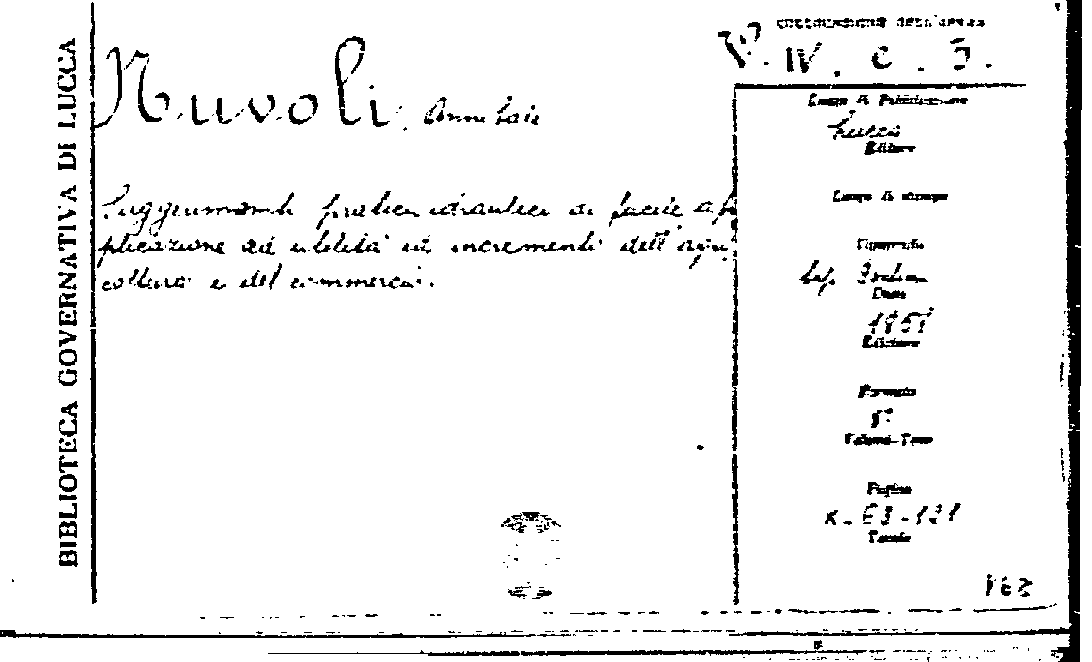 BIBLIOTECA GOVERNATIVA DI LUCCA
Nuvoli, Annibale
Suggerimenti pratici idraulici di facile ap
plicazione ad utilità ed incremento dell'agri
coltura e del commercio.
COLLOCAZIONE DELL'OPERA
IV. C. 5.
Luogo di Pubblicazione
Lucca
Editore
Luogo di stampa
Tipografo
Data
Edizione
Formato
8°
Volumi-Tomo
Pagine
Tavole